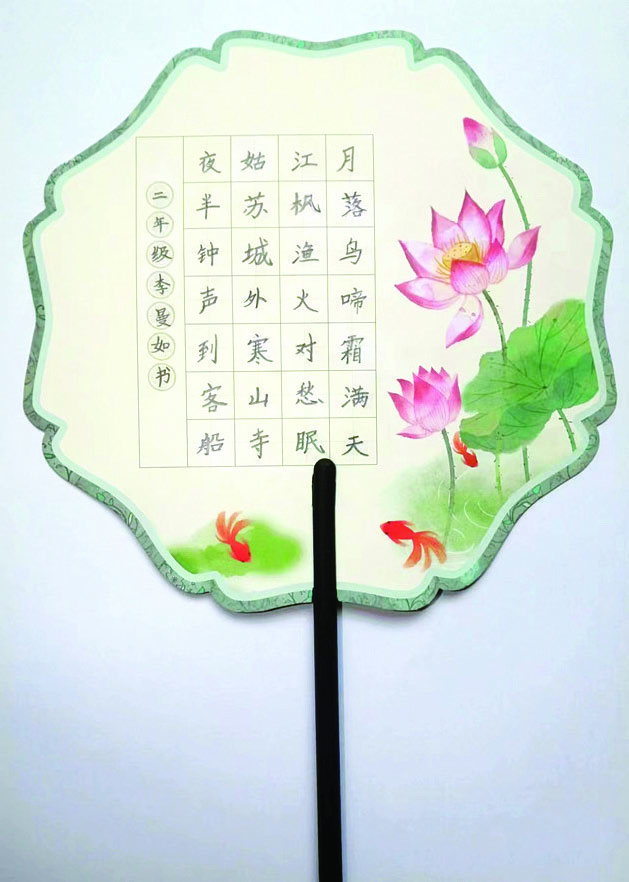 月落鸟啼霜满天
江枫渔火对愁眠
姑苏城外寒山寺
夜半钟声到客船
二年级李曼如书